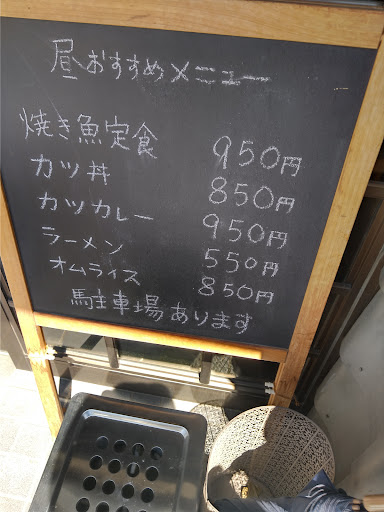 昼おすすめメニュー
焼き魚定食 950円
カツ丼 850円
カツカレー 950円
ラーメン 550円
オムライス 850円
駐車場あります